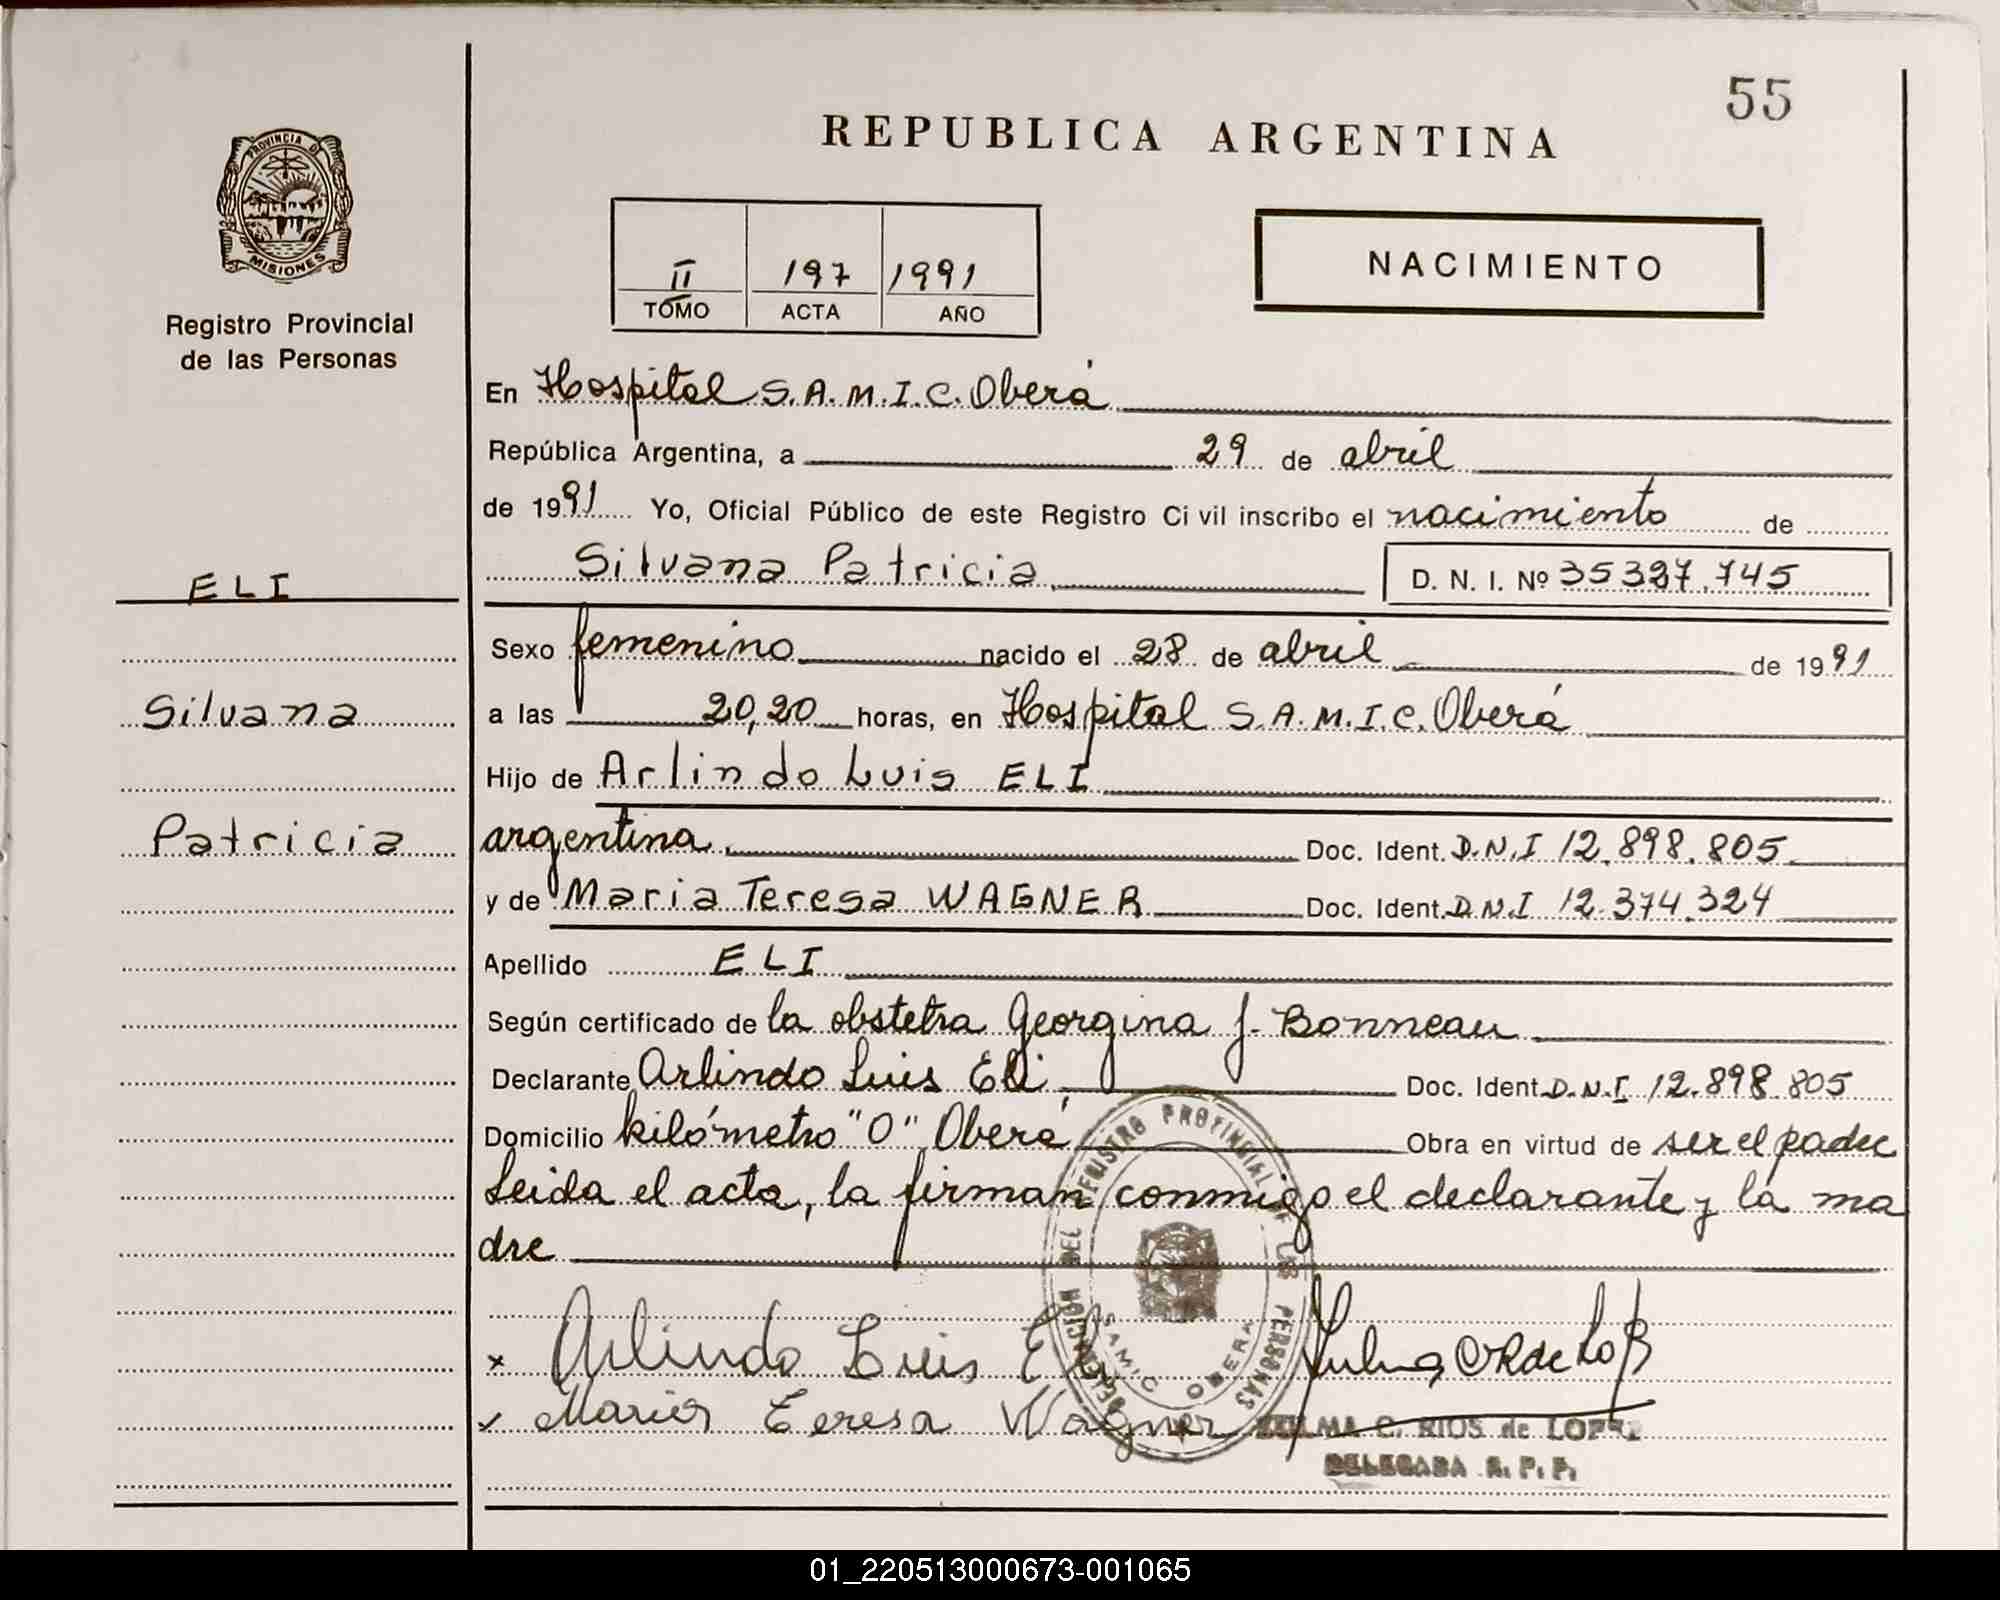 55
REPUBLICA ARGENTINA
PROVINCIA DE
MISIONES
Registro Provincial
de las Personas
II 197 1991
TOMO ACTA AÑO
NACIMIENTO
En Hospital S.A.M.I.C. Oberá
República Argentina, a 29 de abril
de 1991 Yo, Oficial Público de este Registro Civil inscribo el nacimiento de
Silvana Patricia D. N. I. Nº 35327.745
ELI
Silvana
Patricia
Sexo femenino nacido el 28 de abril de 1991
a las 20,20 horas, en Hospital S.A.M.I.C. Oberá
Hijo de Arlindo Luis ELI
argentina Doc. Ident. D.N.I 12.898.805
y de Maria Teresa WAGNER Doc. Ident. D.N.I 12.374.324
Apellido ELI
Según certificado de la obstetra Georgina J. Bonneau
Declarante Arlindo Luis Eli Doc. Ident. D.N.I. 12.898.805
Domicilio kilómetro "0" Oberá Obra en virtud de ser el padre
Leida el acta, la firman conmigo el declarante y la ma
dre
x Arlindo Luis Eli
Maria Teresa Wagner
DELEGACION DEL REGISTRO PROVINCIAL DE LAS PERSONAS
SAMIC OBERA
ZULMA C. RIOS de LOPEZ
DELEGADA R. P. P.
01_220513000673-001065